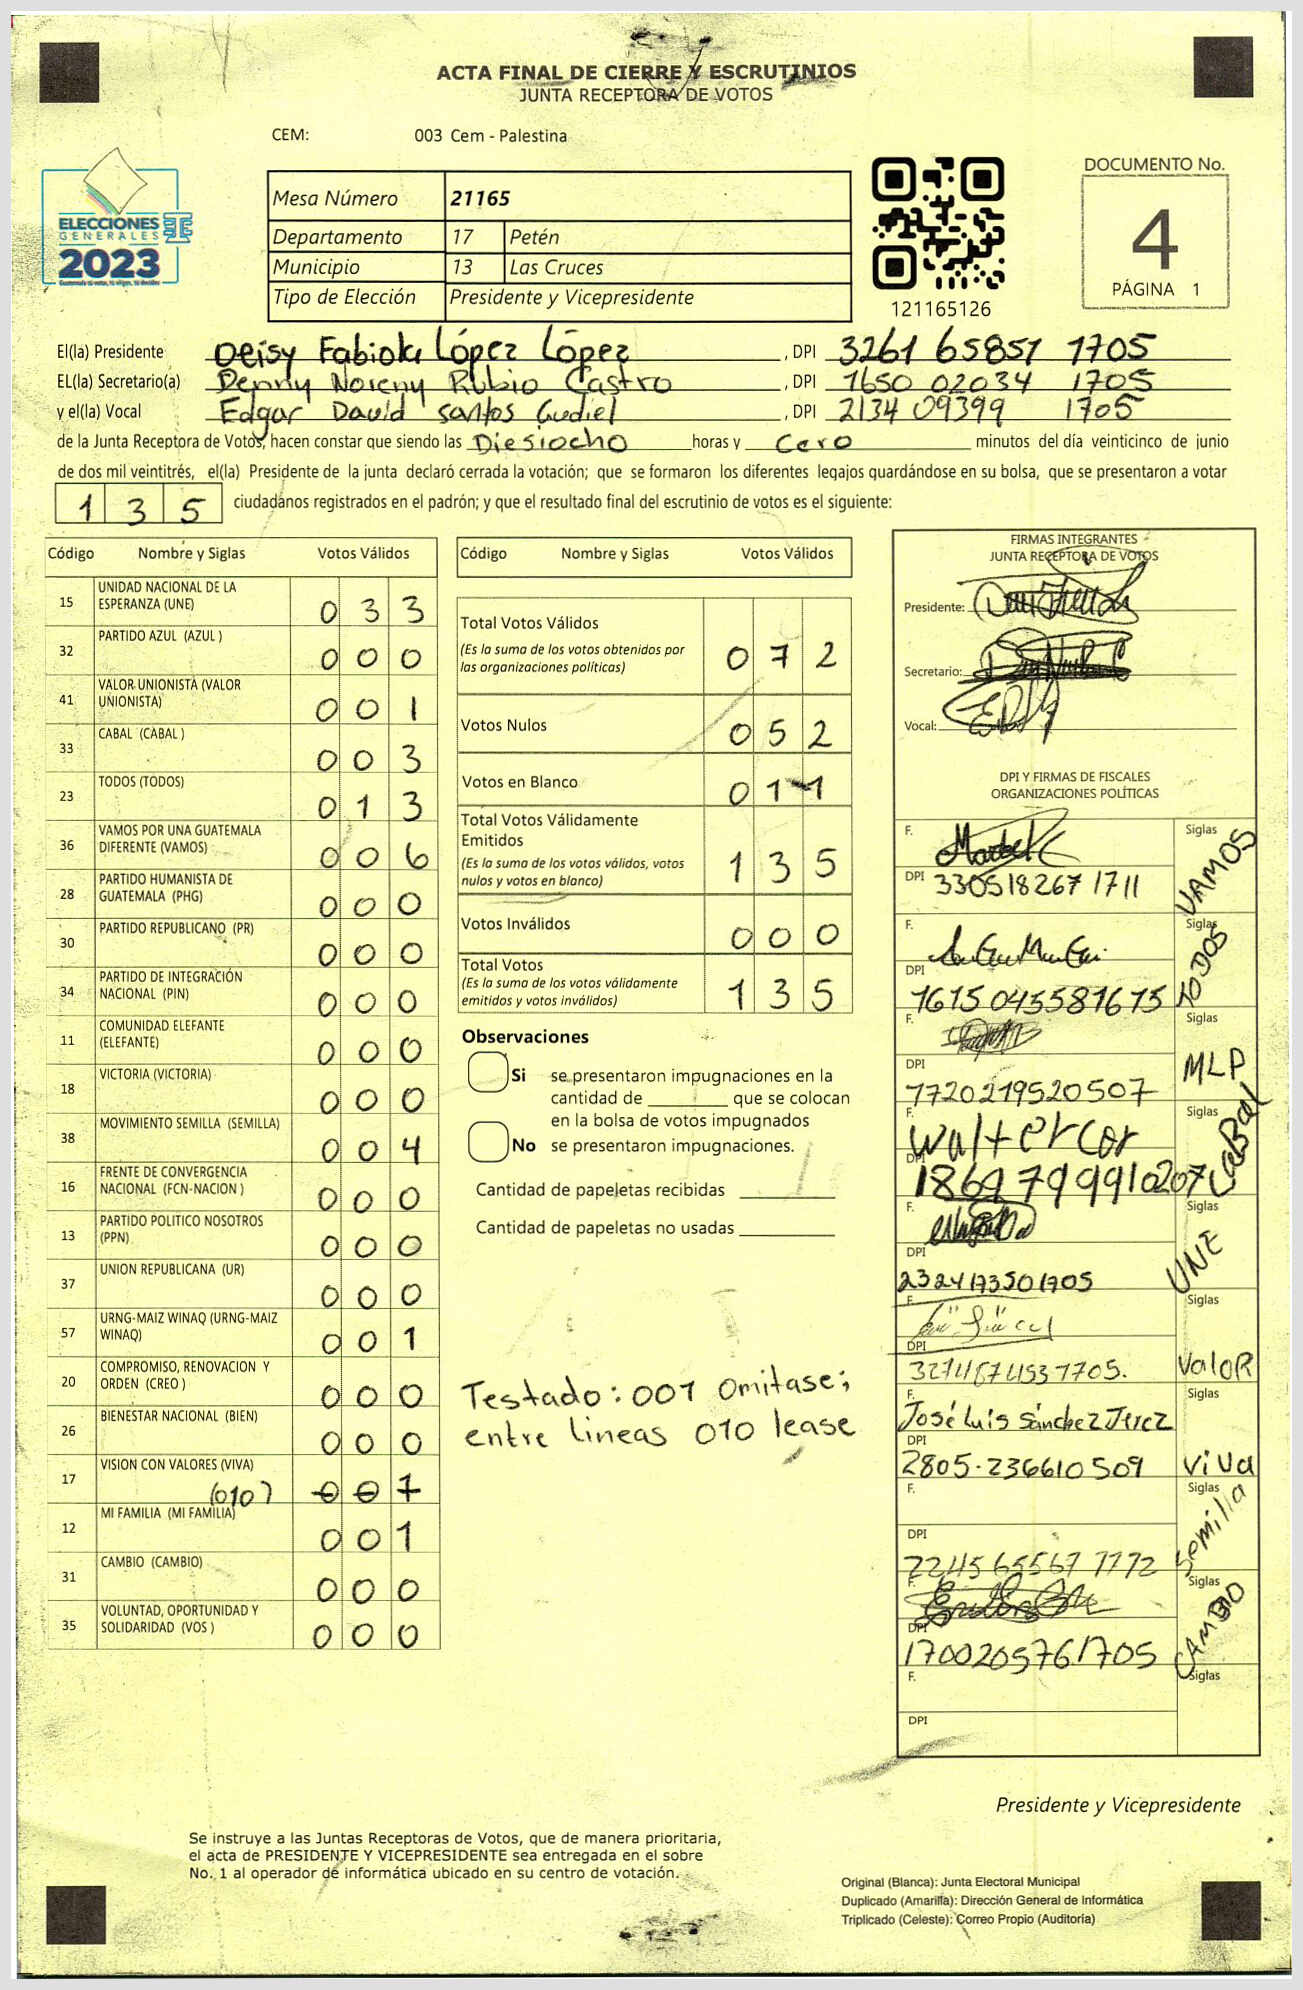 ACTA FINAL DE CIERRE Y ESCRUTINIOS
JUNTA RECEPTORA DE VOTOS
CEM: 003 Cem - Palestina
ELECCIONES
GENERALES
2023
Mesa Número 21165
Departamento 17 Petén
Municipio 13 Las Cruces
Tipo de Elección Presidente y Vicepresidente
121165126
DOCUMENTO No.
4
PÁGINA 1
El(la) Presidente Deisy Fabiola López López, DPI 3261 65851 1705
EL(la) Secretario(a) Denny Noreny Rubio Castro, DPI 1650 02034 1705
y el(la) Vocal Edgar David Santos Gudiel, DPI 2134 09399 1705
de la Junta Receptora de Votos, hacen constar que siendo las Diesiocho horas y cero minutos del día veinticinco de junio
de dos mil veintitrés, el(la) Presidente de la junta declaró cerrada la votación; que se formaron los diferentes legajos guardándose en su bolsa, que se presentaron a votar
135 ciudadanos registrados en el padrón; y que el resultado final del escrutinio de votos es el siguiente:
Código Nombre y Siglas Votos Válidos
15 UNIDAD NACIONAL DE LA ESPERANZA (UNE) 033
32 PARTIDO AZUL (AZUL ) 000
41 VALOR UNIONISTA (VALOR UNIONISTA) 001
33 CABAL (CABAL ) 003
23 TODOS (TODOS) 013
36 VAMOS POR UNA GUATEMALA DIFERENTE (VAMOS) 006
28 PARTIDO HUMANISTA DE GUATEMALA (PHG) 000
30 PARTIDO REPUBLICANO (PR) 000
34 PARTIDO DE INTEGRACIÓN NACIONAL (PIN) 000
11 COMUNIDAD ELEFANTE (ELEFANTE) 000
18 VICTORIA (VICTORIA) 000
38 MOVIMIENTO SEMILLA (SEMILLA) 004
16 FRENTE DE CONVERGENCIA NACIONAL (FCN-NACION ) 000
13 PARTIDO POLITICO NOSOTROS (PPN) 000
37 UNION REPUBLICANA (UR) 000
57 URNG-MAIZ WINAQ (URNG-MAIZ WINAQ) 001
20 COMPROMISO, RENOVACION Y ORDEN (CREO ) 000
26 BIENESTAR NACIONAL (BIEN) 000
17 VISION CON VALORES (VIVA) (010) 001
12 MI FAMILIA (MI FAMILIA) 001
31 CAMBIO (CAMBIO) 000
35 VOLUNTAD, OPORTUNIDAD Y SOLIDARIDAD (VOS ) 000
Código Nombre y Siglas Votos Válidos
Total Votos Válidos 072
(Es la suma de los votos obtenidos por las organizaciones políticas)
Votos Nulos 052
Votos en Blanco 011
Total Votos Válidamente Emitidos 135
(Es la suma de los votos válidos, votos nulos y votos en blanco)
Votos Inválidos 000
Total Votos 135
(Es la suma de los votos válidamente emitidos y votos inválidos)
Observaciones
Si se presentaron impugnaciones en la
cantidad de que se colocan
en la bolsa de votos impugnados
No se presentaron impugnaciones.
Cantidad de papeletas recibidas
Cantidad de papeletas no usadas
Testado: 001 Omitase;
entre lineas 010 lease
FIRMAS INTEGRANTES
JUNTA RECEPTORA DE VOTOS
Presidente:
Secretario:
Vocal:
DPI Y FIRMAS DE FISCALES
ORGANIZACIONES POLÍTICAS
F. Siglas VAMOS
DPI 330518267 1711
F. Siglas TODOS
DPI 1615045581615
F. Siglas MLP
DPI 1720219520507
F. Walter Cor Siglas CABAL
DPI 1869799910207
F. Siglas UNE
DPI 2324173501705
F. Siglas ValoR
DPI
F. José Luis Sánchez Jerez Siglas ViVa
DPI 2805-236610509
F. Siglas Semilla
DPI 2245655671772
F. Siglas CAMBIO
DPI 1700205761705
F. Siglas
DPI
Presidente y Vicepresidente
Se instruye a las Juntas Receptoras de Votos, que de manera prioritaria,
el acta de PRESIDENTE Y VICEPRESIDENTE sea entregada en el sobre
No. 1 al operador de informática ubicado en su centro de votación.
Original (Blanca): Junta Electoral Municipal
Duplicado (Amarilla): Dirección General de Informática
Triplicado (Celeste): Correo Propio (Auditoría)